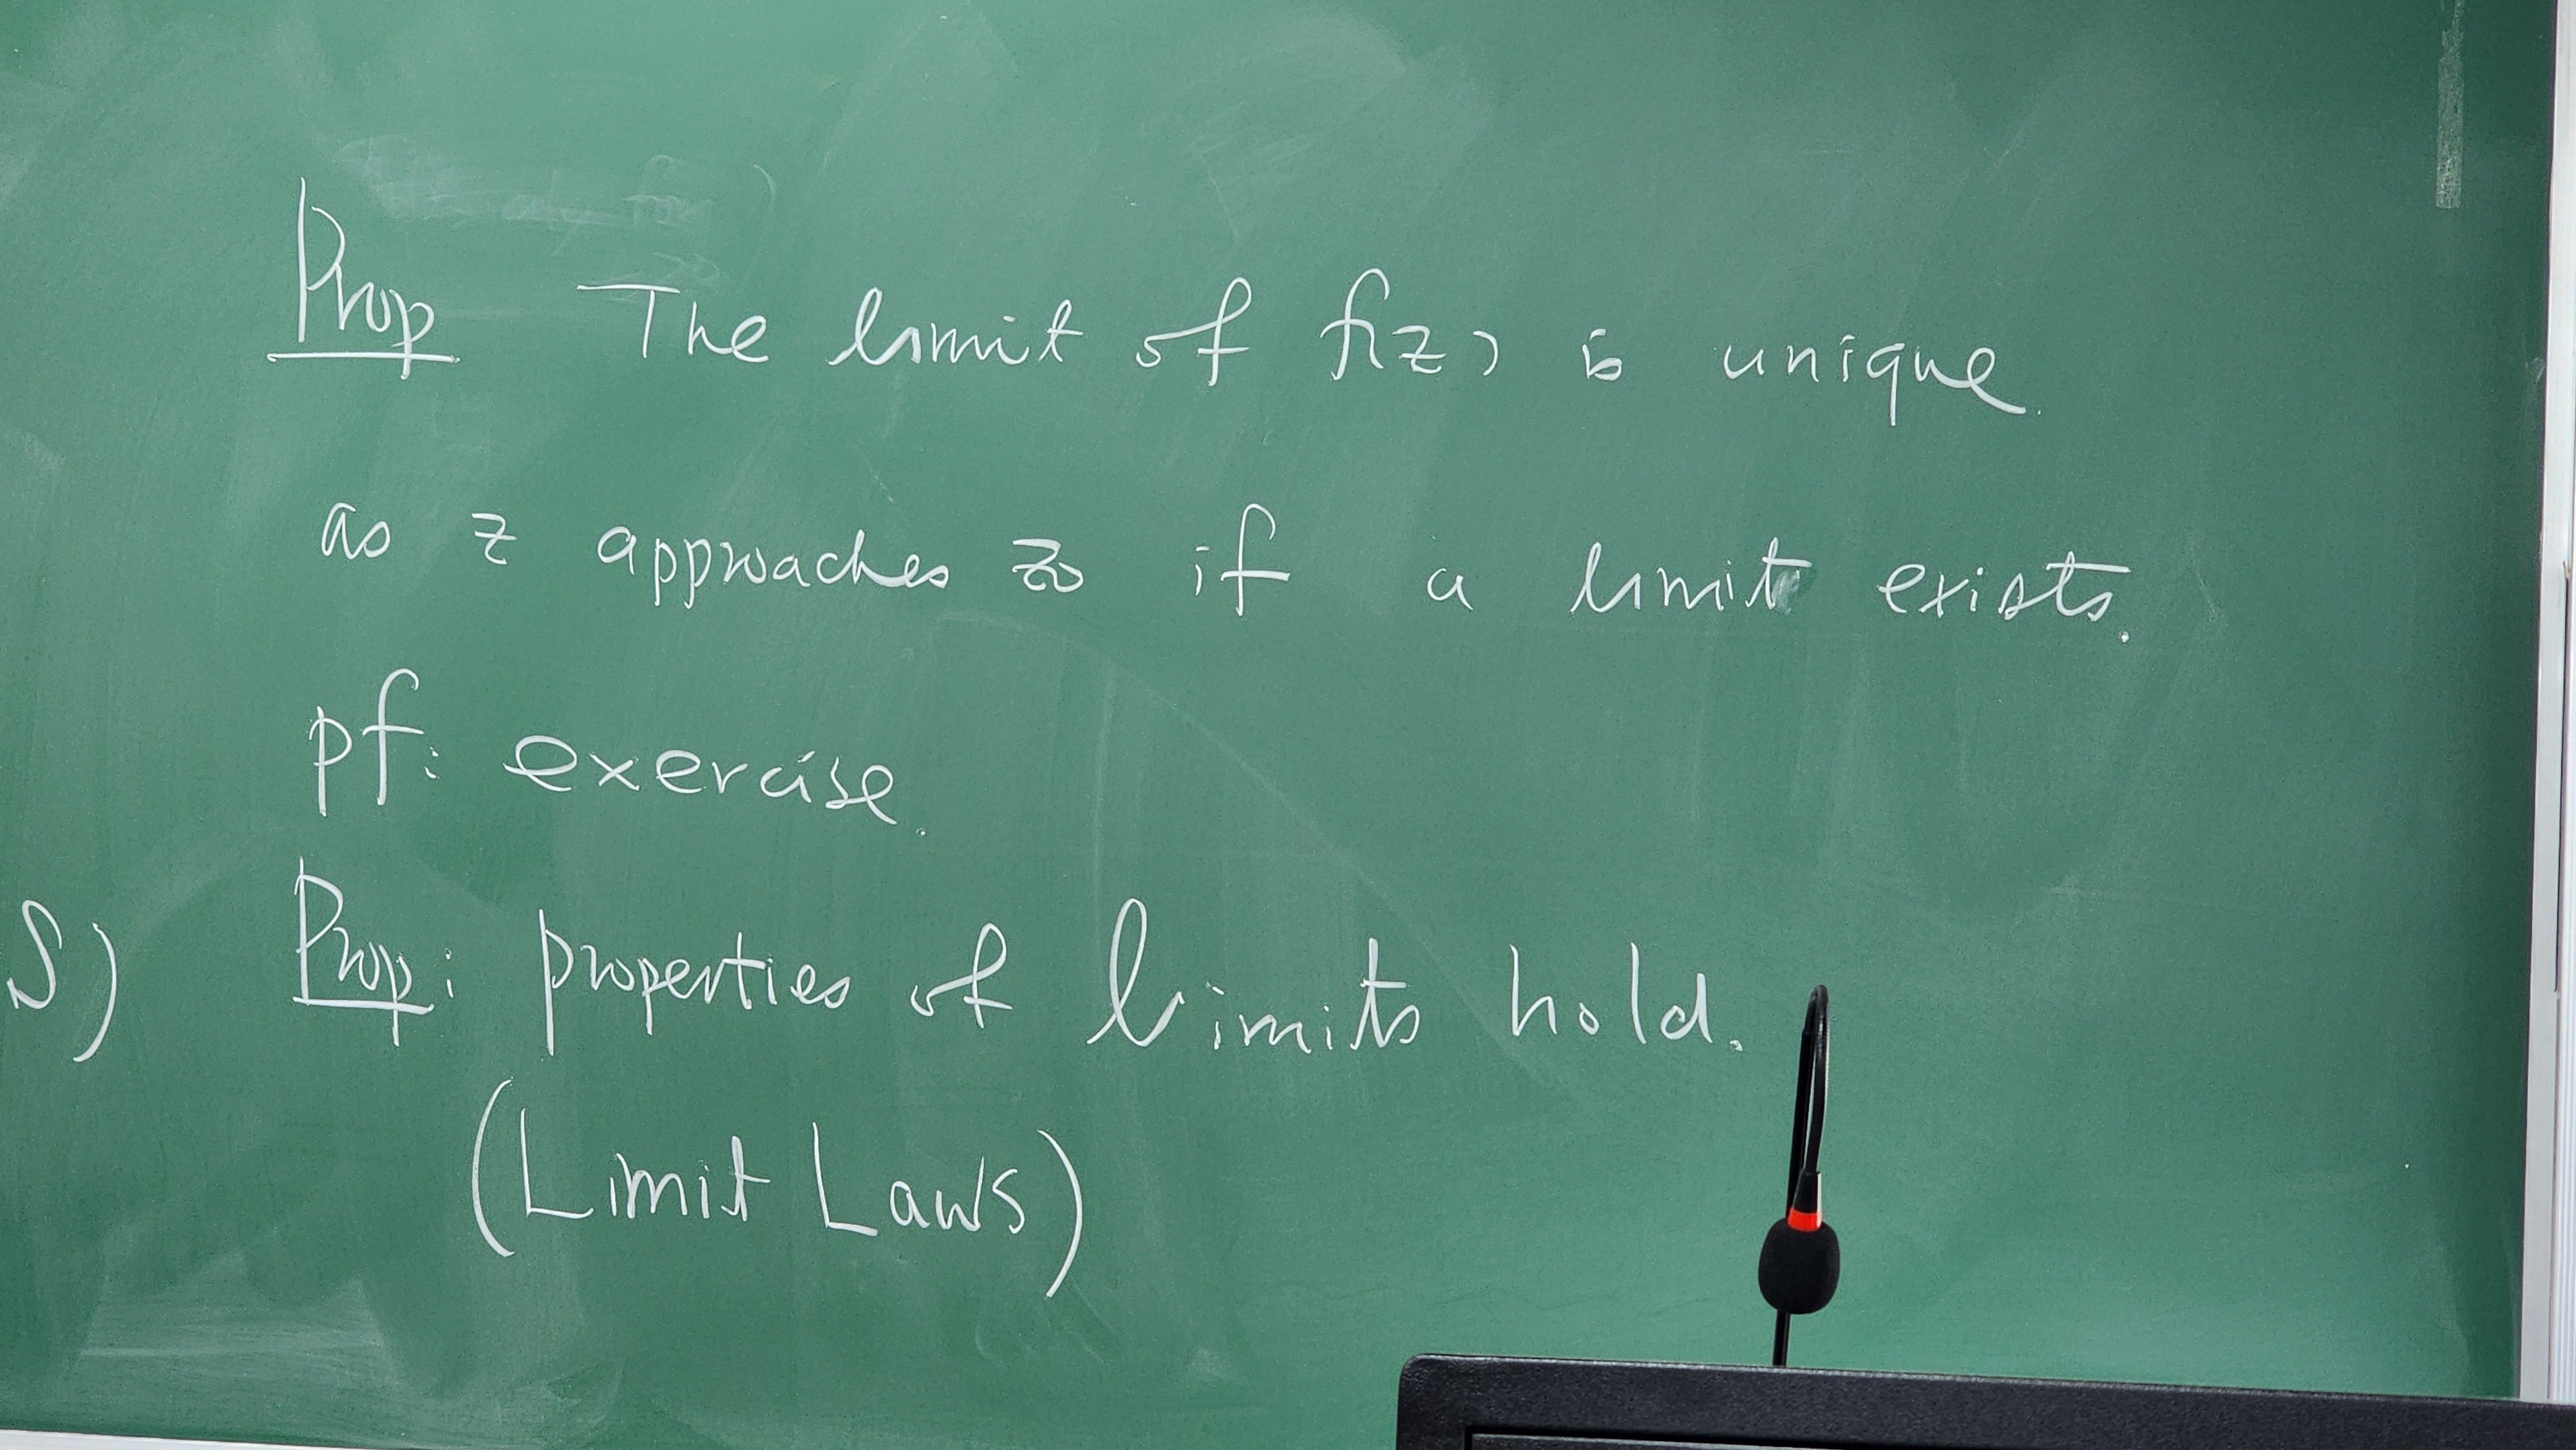 Prop The limit of f(z) is unique.
as z approaches z₀ if a limit exists.
pf: exercise.
S) Prop: properties of limits hold.
(Limit Laws)